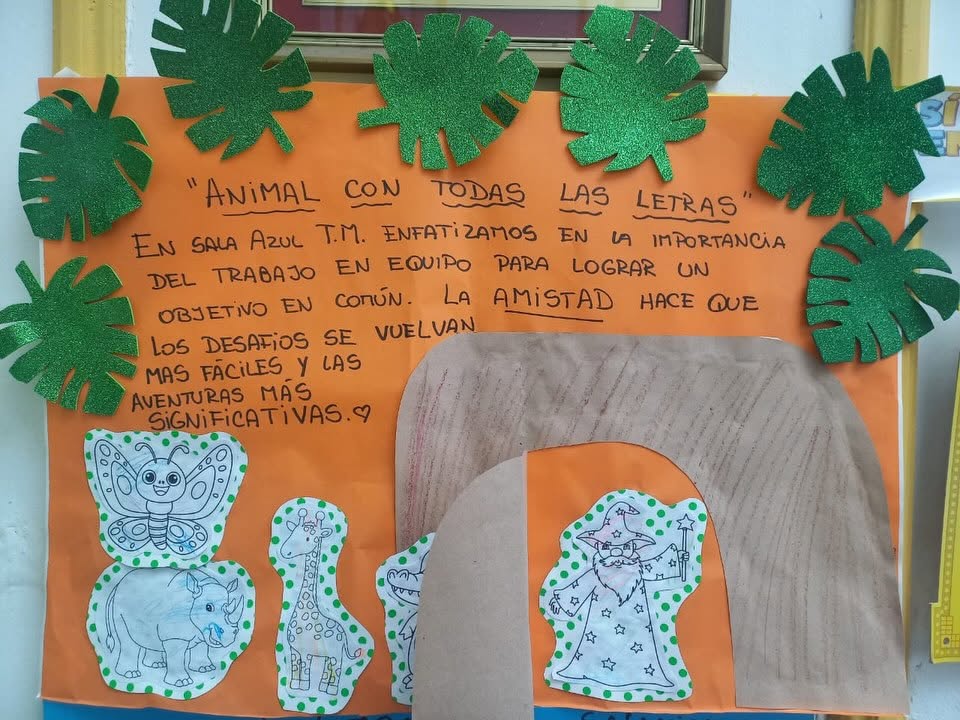 "ANIMAL CON TODAS LAS LETRAS"
EN SALA AZUL T.M. ENFATIZAMOS EN LA IMPORTANCIA
DEL TRABAJO EN EQUIPO PARA LOGRAR UN
OBJETIVO EN COMÚN. LA AMISTAD HACE QUE
LOS DESAFÍOS SE VUELVAN
MAS FÁCILES Y LAS
AVENTURAS MÁS
SIGNIFICATIVAS.♡